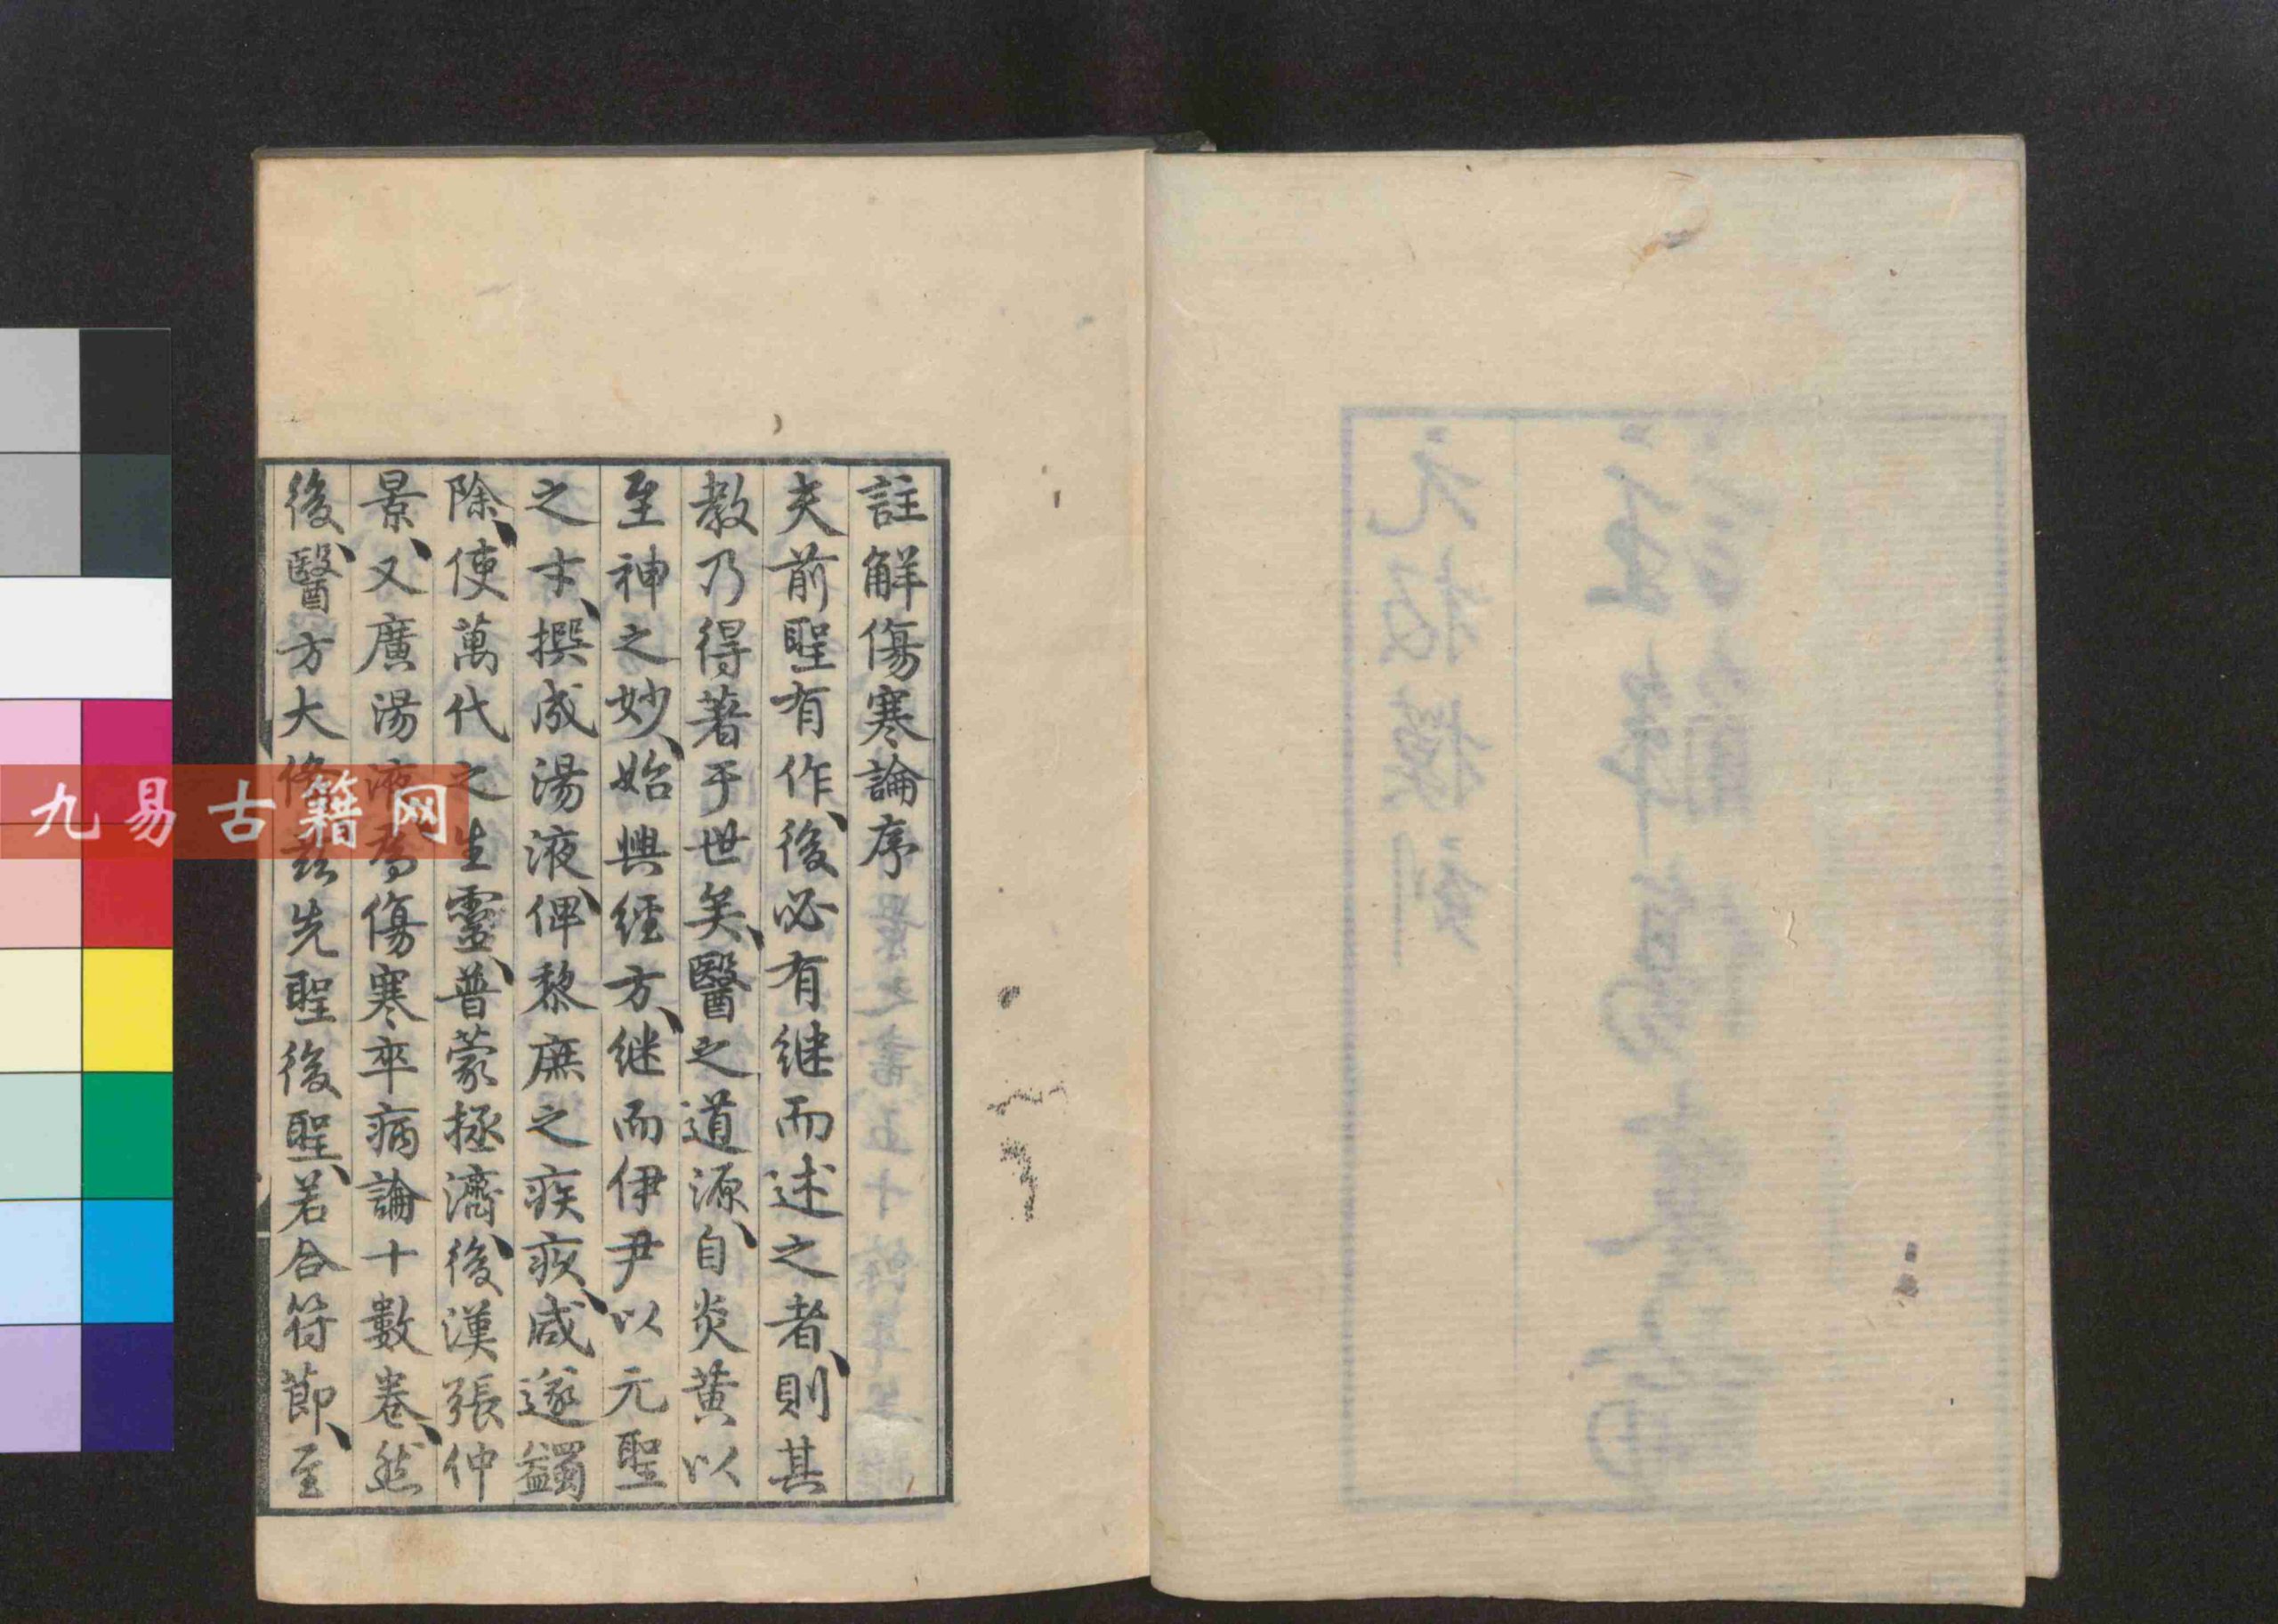 註解傷寒論序
夫前聖有作後必有继而述之者則其
教乃得著于世矣醫之道源自炎黄以
至神之妙始興經方继而伊尹以元聖
之才撰成湯液俾黎庶之疾疢咸遂蠲
除使萬代之生靈普蒙拯濟後漢張仲
景又廣湯液為傷寒卒病論十數卷然
後醫方大俻兹先聖後聖若合符節至
九易古籍网